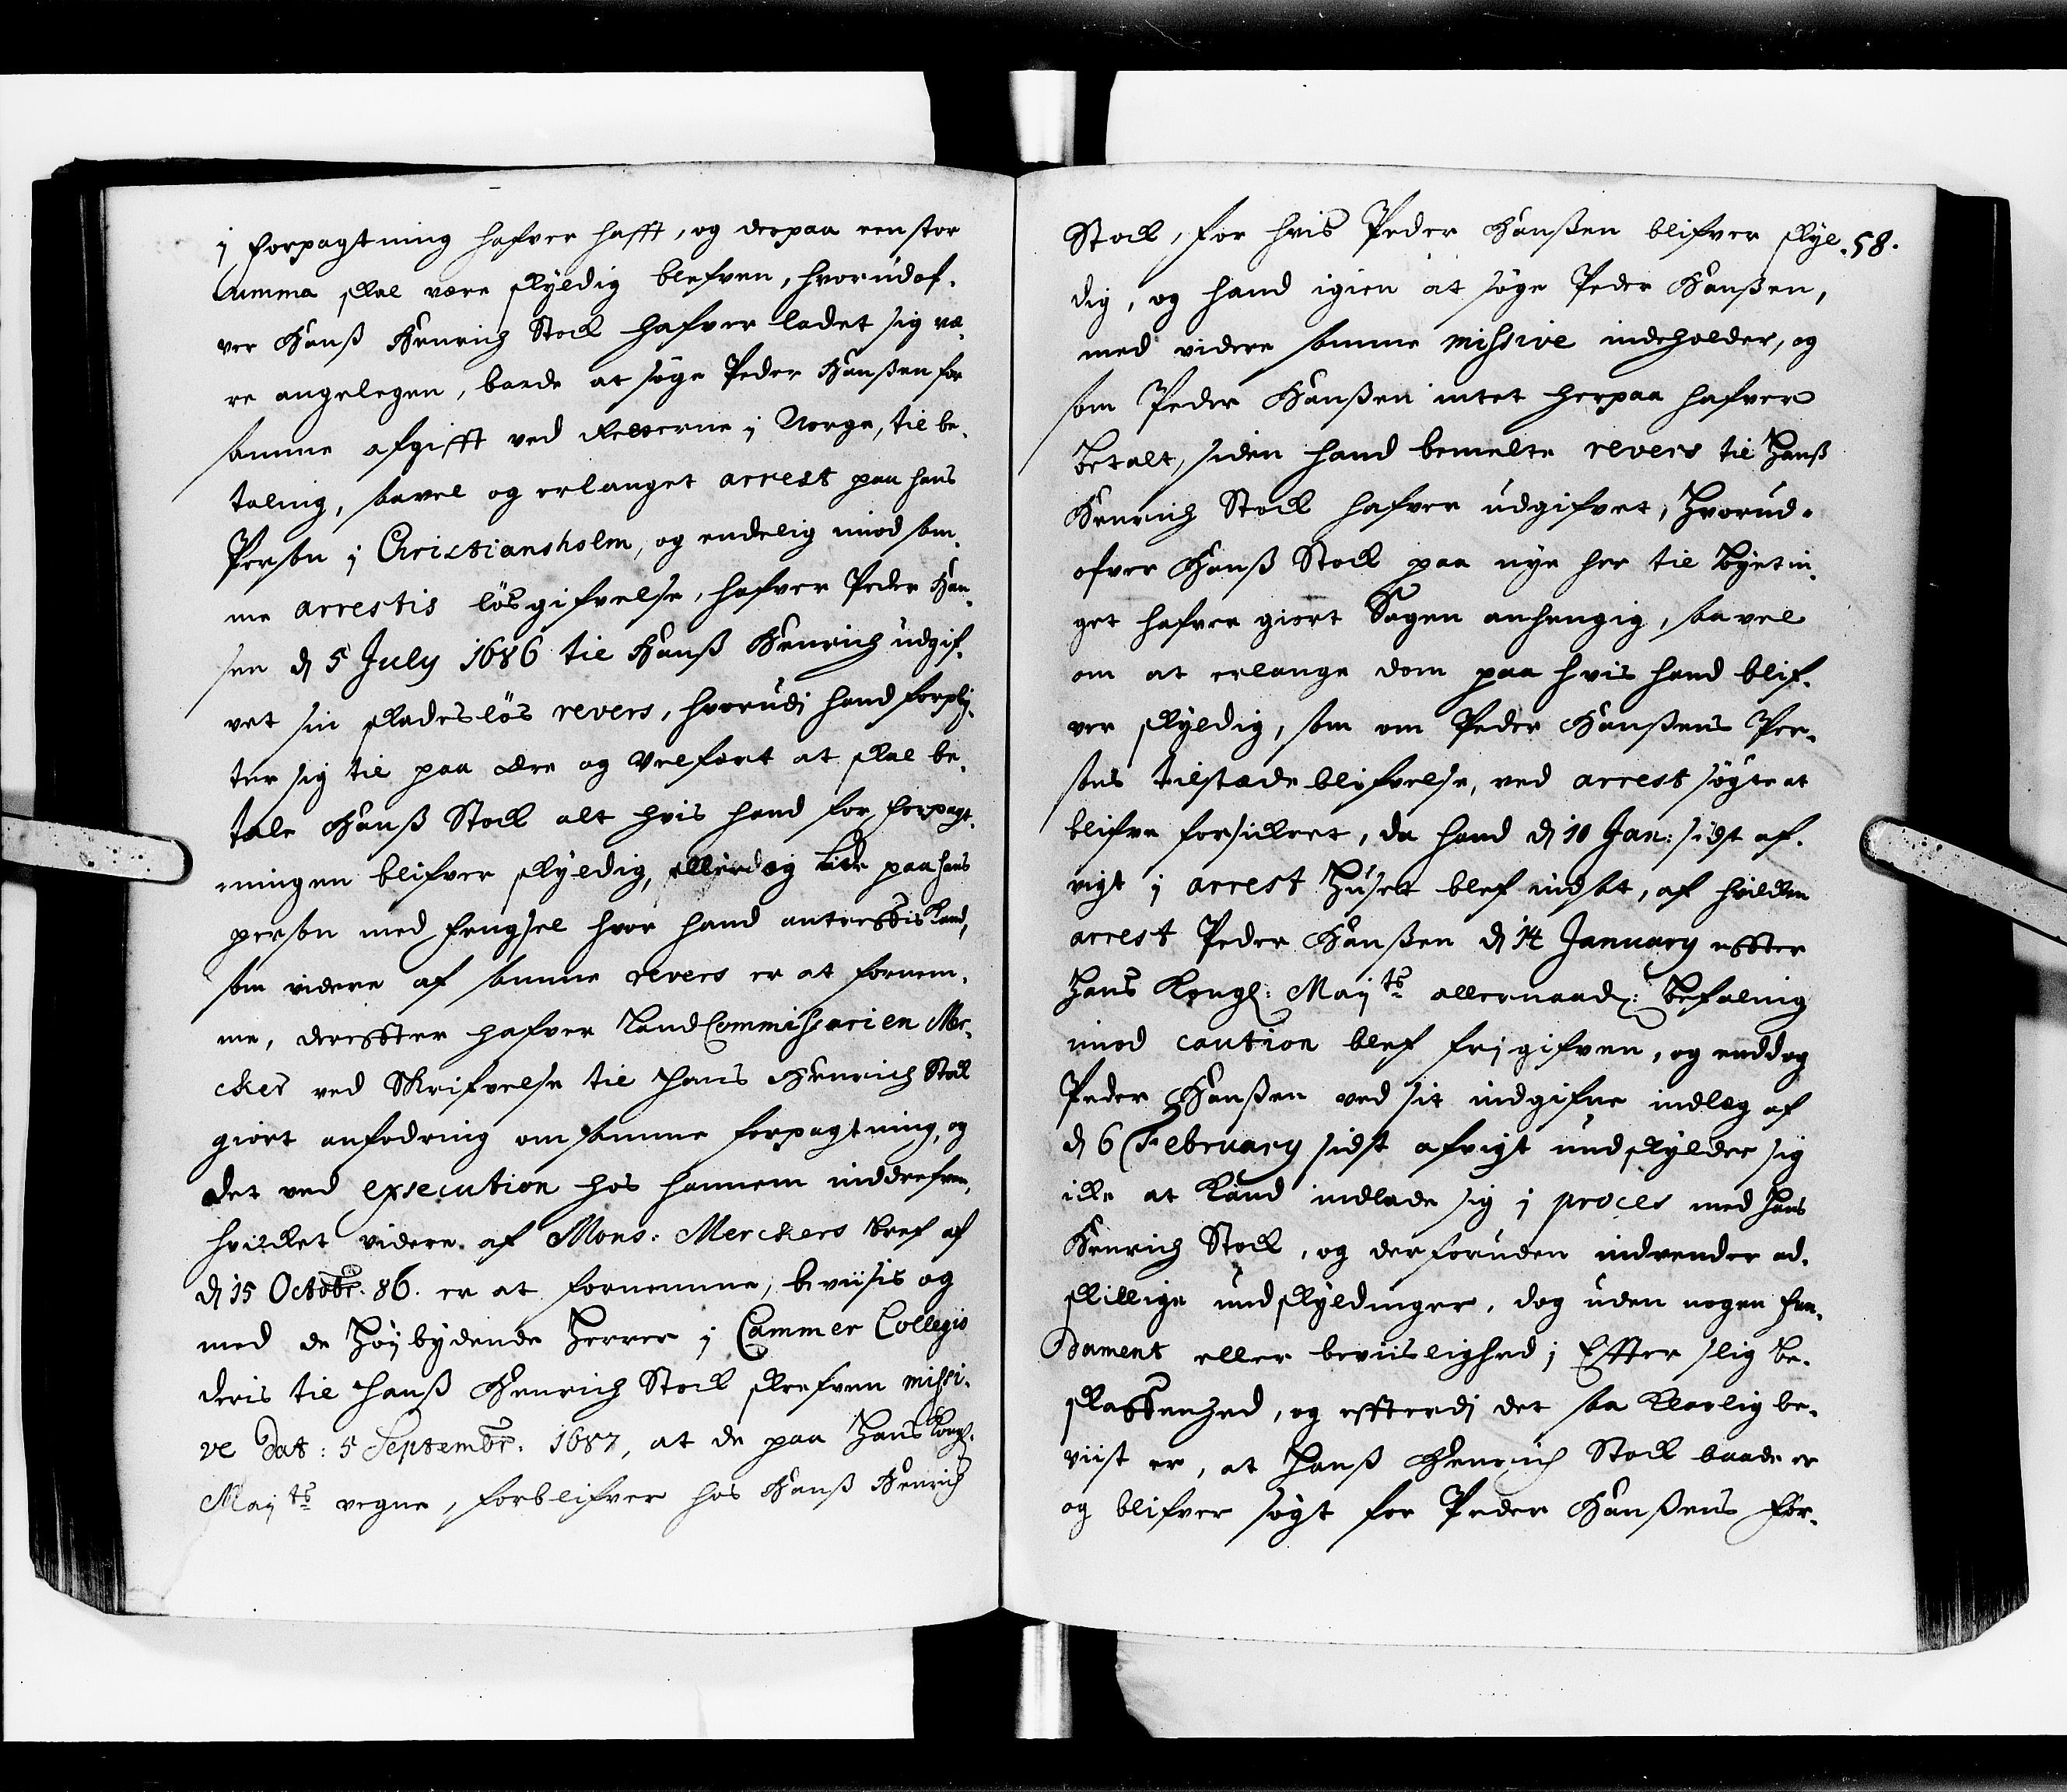 j forpagtning hafver hafft, og derpaa een stor
summa skal være skyldig blefven, hvorudof-
ver Hanß Henrich Stock hafver ladet sig væ-
re angelegen, baade at søge Peder Hanßen for
samme afgifft ved Retterne j Norge, til be-
taling, saavel og erlanget arrest paa hans
Person j Christiansholm, og endelig imod sam-
me arrestis løsgifvelse, hafver Peder Han-
sen d 5 July 1686 til Hanß Henrich udgif-
vet sin skadesløs revers, hvorudj hand forplig-
ter sig til paa ære og Velfært at skal be-
tale Hanß Stock alt hvis hand for forpagt-
ningen blifver skyldig, eller og lide paa hans
person med fengsel hvor hand antreffis kand,
som videre af samme revers er at fornem-
me, dereffter hafver LandCommissarien Mer-
cker ved Skrifvelse til Hans Henrich Stock
giort anfodring om samme forpagtning, og
det ved execution hos hannem inddrefven,
hvilket videre af Mons: Merckers bref af
d 15 Octobr. 86. er at fornemme, beviisis og
med de Høybydende Herrer j Cammer Collegio
deris til Hanß Henrich Stock skrefven missi-
ve Dat: 5 Septembr. 1687, at de paa Hans Kongl.
Maj ts vegne, forblifver hos Hanß Henrich
58.
Stock, for hvis Peder Hanßen blifver skyl-
dig, og hand igien at søge Peder Hanßen,
med videre samme missive indeholder, og
som Peder Hanßen intet herpaa hafver
betalt, siden hand bemelte revers til Hanß
Henrich Stock hafver udgifvet, Hvorud-
ofver Hanß Stock paa nye her til Byetin-
get hafver giort Sagen anhengig, saavel
om at erlange dom paa hvis hand blif-
ver skyldig, som om Peder Hanßens Per-
sons tilstædeblifvelse, ved arrest søgte at
blifve forsickret, da hand d 10 Jan: sidst af-
vigt j arrest Huset blef indsat, af hvilken
arrest Peder Hanßen d 14 January effter
Hans Kongl: Maj ts allernaad: Befaling
imod caution blef frigifven, og enddog
Peder Hanßen ved sit indgifne indlæg af
d 6 February sidst afvigt undskylder sig
icke at kand indlade sig j proces med Hans
Henrich Stock, og derforuden indvender ad-
skillige undskyldninger, dog uden nogen fun-
dament eller beviislighed; Effter slig be-
skaffenhed, og effterdj det saa klarlig be-
viist er, at Hanß Henrich Stock baade er
og blifver søgt for Peder Hanßens for-